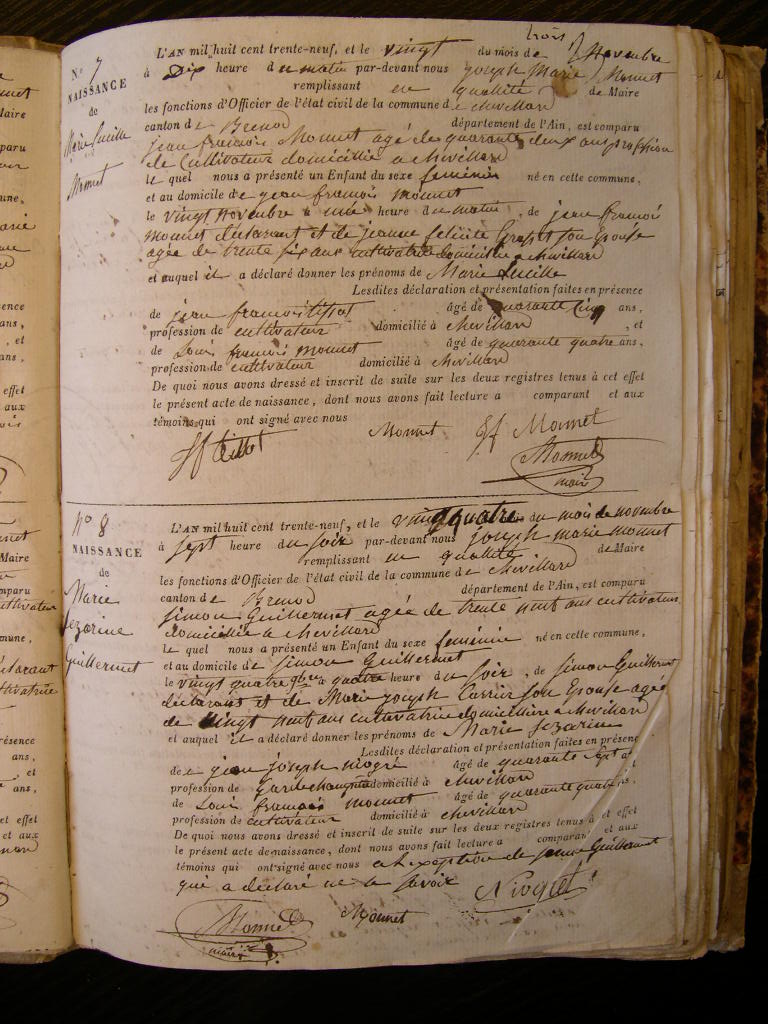 N° 7
NAISSANCE
de
Marie Lucille
Monnet
L'AN mil huit cent trente-neuf, et le vingt trois du mois de Novembre
à Dix heure du matin par-devant nous Joseph Marie Monnet
remplissant en qualité de Maire
les fonctions d'Officier de l'état civil de la commune de chevillard
canton de Brenod département de l'Ain, est comparu
jean françois Monnet agé de quarante deux ans profession
de Cultivateur domicillié a chevillard
le quel nous a présenté un Enfant du sexe feminin né en cette commune,
et au domicile de jean francois monnet
le vingt novembre à une heure du matin, de jean francois
monnet declarant et de jeanne felicite Gropet son Epouse
agée de trente six ans cultivatrice domiciliée a chevillard
et auquel il a déclaré donner les prénoms de Marie Lucille
Lesdites déclaration et présentation faites en présence
de jean francois tissot âgé de quarante cinq ans,
profession de cultivateur domicilié à chevillard, et
de Louis francois monnet âgé de quarante quatre ans,
profession de cultivateur domicilié à chevillard
De quoi nous avons dressé et inscrit de suite sur les deux registres tenus à cet effet
le présent acte de naissance, dont nous avons fait lecture a comparant et aux
témoins qui ont signé avec nous
Monnet
Monnet
Monnet
maire
N° 8
NAISSANCE
de
Marie
Sezarine
Guillermet
L'AN mil huit cent trente-neuf, et le vingt quatre du mois de novembre
à sept heure du soir par-devant nous joseph marie monnet
remplissant en qualité de Maire
les fonctions d'Officier de l'état civil de la commune de chevillard
canton de Brenod département de l'Ain, est comparu
Simon Guillermet agée de trente neuf ans cultivateur
domicillié a chevillard
le quel nous a présenté un Enfant du sexe feminin né en cette commune,
et au domicile de Simon Guillermet
le vingt quatre 9bre à quatre heure du soir, de Simon Guillermet
déclarant et de Marie joseph Carrier son Epouse agé
de vingt neuf ans cultivatrice domicilliere a chevillard
et auquel il a déclaré donner les prénoms de Marie Sezarine
Lesdites déclaration et présentation faites en présence
de jean joseph âgé de quarante sept
profession de Garde champetre domicilié à chevillard
de Louis francois monnet âgé de quarante quatre ans,
profession de cultivateur domicilié à chevillard
De quoi nous avons dressé et inscrit de suite sur les deux registres tenus à cet effet
le présent acte de naissance, dont nous avons fait lecture a comparant et aux
témoins qui ont signé avec nous a l'exeption de Guillermet
qui a déclaré ne le savoir
Monnet
Monnet
maire